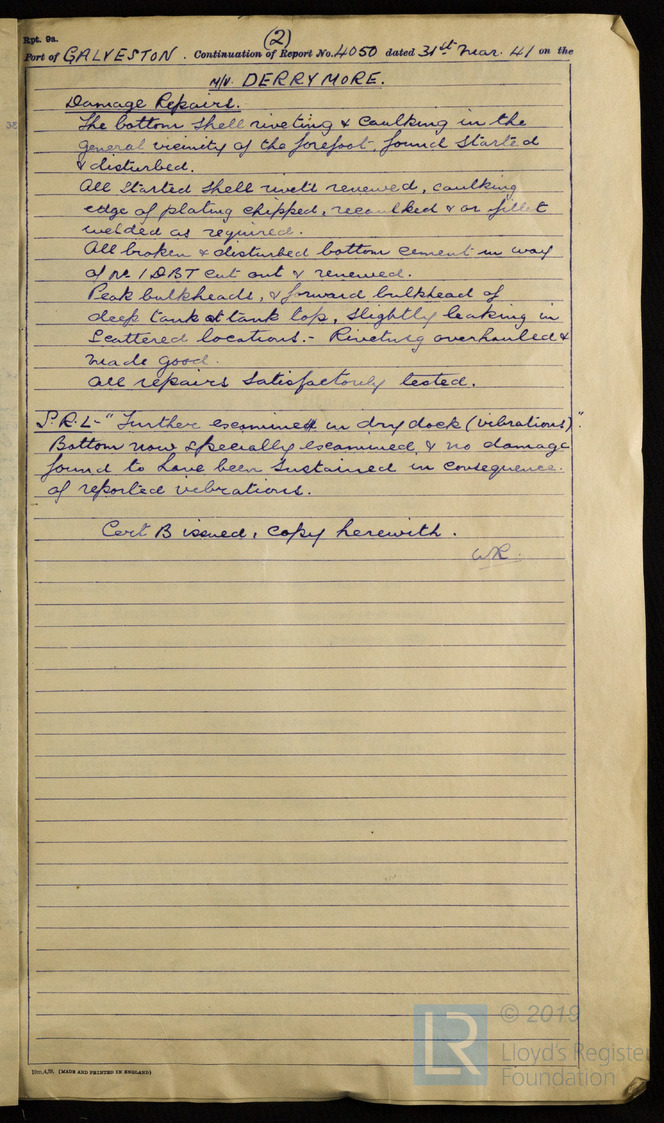 (2)
Rpt. 9a.
Port of GALVESTON. Continuation of Report No. 4050 dated 31st Mar. 41 on the
M/V. DERRYMORE.
Damage Repairs.
The bottom shell riveting & caulking in the
general vicinity of the forefoot, found started
& disturbed.
All started shell rivets renewed, caulking
edge of plating chipped, recaulked & or fillet
welded as required.
All broken & disturbed bottom cement in way
of No 1 DBT cut out & renewed.
Peak bulkheads, & forward bulkhead of
deep tank at tank top, slightly leaking in
scattered locations.- Riveting overhauled &
made good.
All repairs satisfactorily tested.
S.R.L- "Further examined in dry dock (vibrations)".
Bottom now specially examined & no damage
found to have been sustained in consequence.
of reported vibrations.
Cert B issued, copy herewith.
WR.
(MADE AND PRINTED IN ENGLAND)
LR
© 2019
Lloyd's Register
Foundation